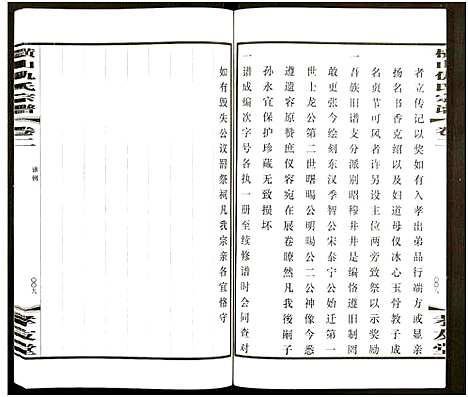 者立传记以奖如有入孝出弟品行端方或显亲
扬名书香克绍以及妇道母仪冰心玉骨教子成
名贞节可风者许另设主位两旁致祭以示奖励
一吾族旧谱支分派别昭穆井井是编恪遵旧制罔
敢更张今绘刻东汉季智公宋泰宁公始迁第一
世上龙公第二世曙赐公明赐公二公神像今悉
遵遗容原赞庶仪容宛在展卷瞭然凡我后嗣子
孙永宜保护珍藏无致损坏
一谱成编次字号各执一册至续修谱时会同查对
如有毁失公议罟祭祠凡我宗亲各宜恪守
横山仇氏宗谱
卷二
谱例
〇〇九
孝友堂